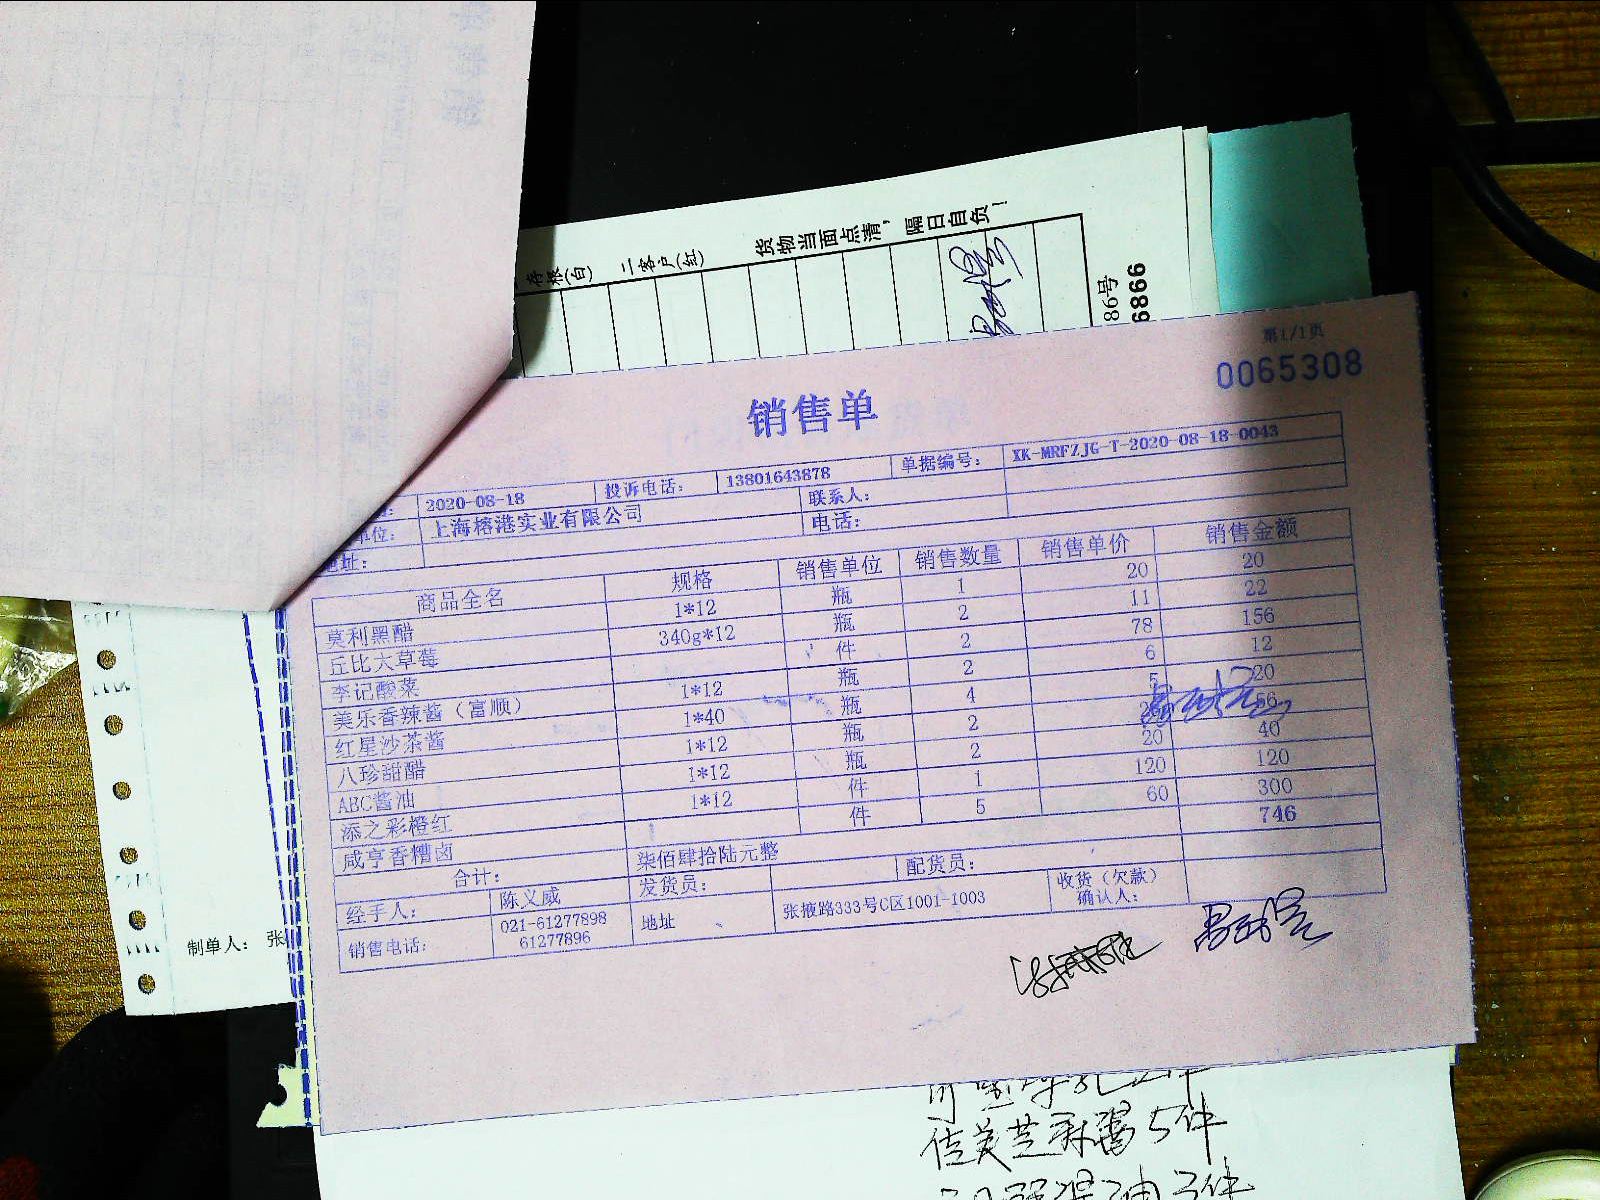 存根(白) 二客户(红) 货物当面点清，隔日自负！
86号
9866
第1/1页
0065308
销售单
2020-08-18 投诉电话： 13801643878 单据编号： XK-MRFZJG-T-2020-08-18-0043
单位： 上海榕港实业有限公司 联系人：
地址： 电话：
商品全名 规格 销售单位 销售数量 销售单价 销售金额
莫利黑醋 1*12 瓶 1 20 20
丘比大草莓 340g*12 瓶 2 11 22
李记酸菜 件 2 78 156
美乐香辣酱（富顺） 1*12 瓶 2 6 12
红星沙茶酱 1*40 瓶 4 5 20
八珍甜醋 1*12 瓶 2 56
ABC酱油 1*12 瓶 2 20 40
添之彩橙红 1*12 件 1 120 120
咸亨香糟卤 件 5 60 300
合计： 柒佰肆拾陆元整 746
经手人： 陈义威 发货员： 配货员：
销售电话： 021-61277898 61277896 地址 张掖路333号C区1001-1003 收货（欠款）确认人：
制单人： 张
佳美芝麻酱5件